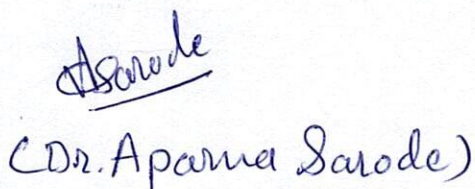 Asarode
(Dr. Aparna Sarode)